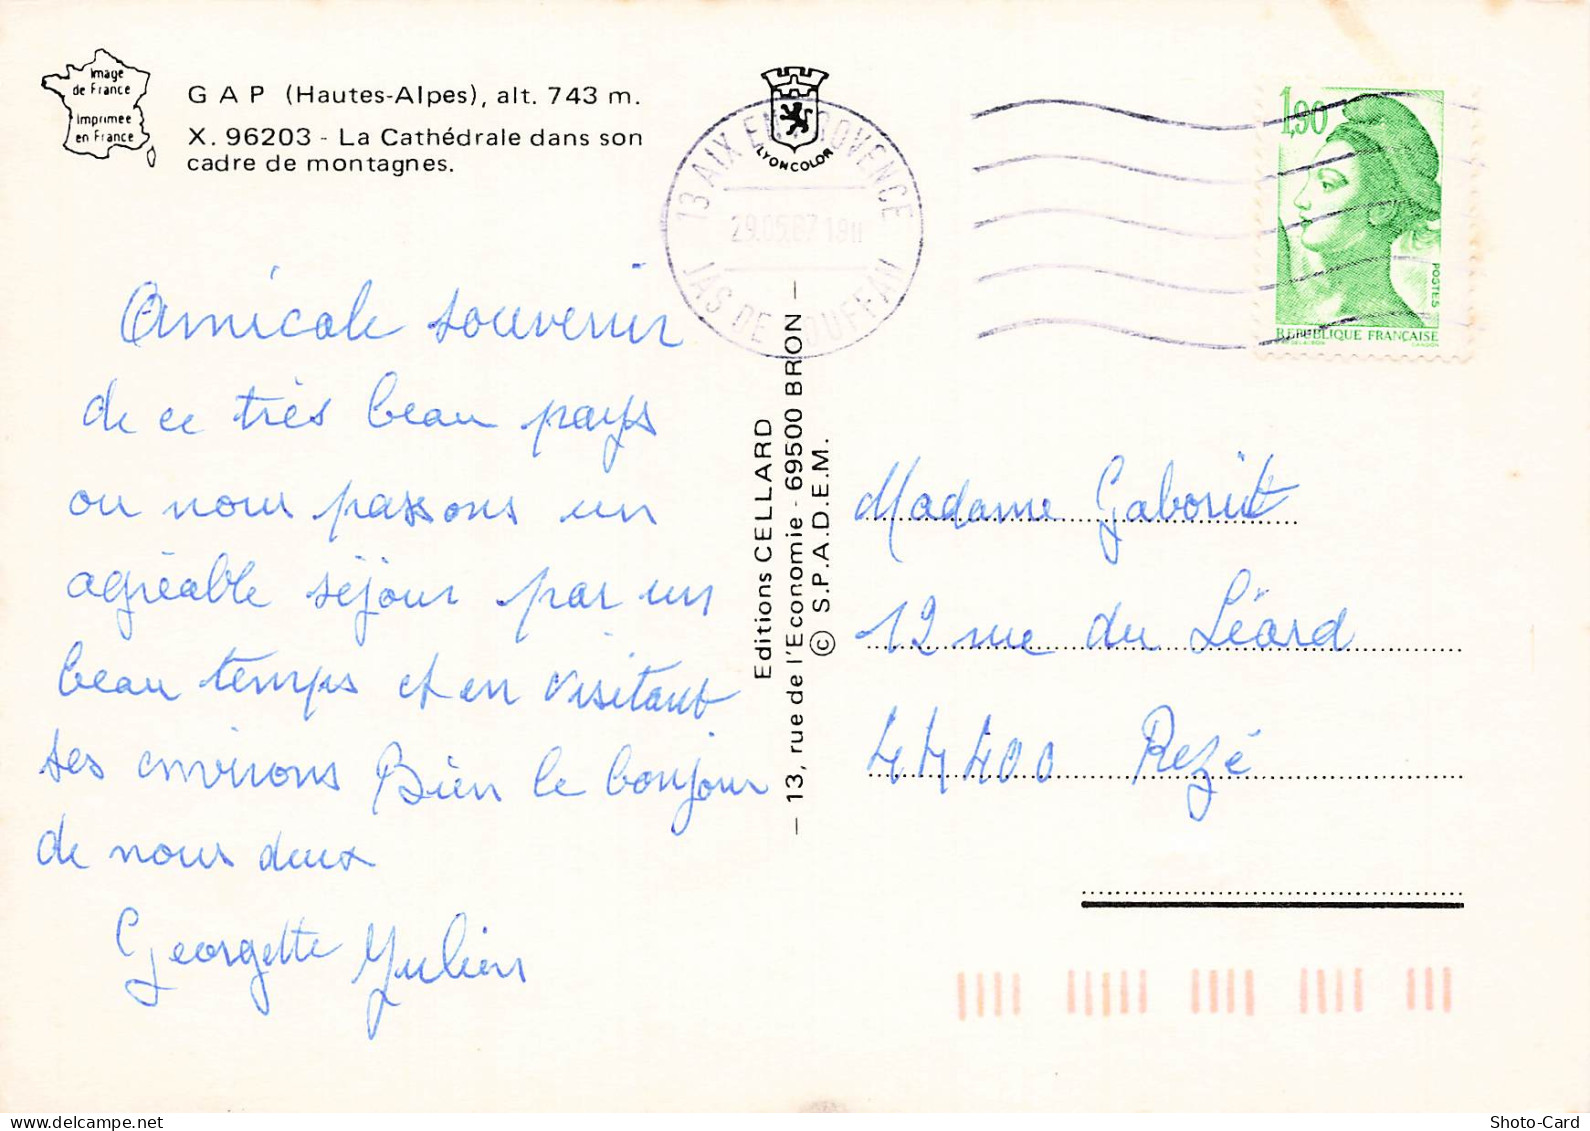 Image
de France
Imprimée
en France
GAP (Hautes-Alpes), alt. 743 m.
X. 96203 - La Cathédrale dans son
cadre de montagnes.
LYONCOLOR
13 AIX EN PROVENCE
29.05.87 18H
JAS DE BOUFFAN
1,90
POSTES
REPUBLIQUE FRANÇAISE
Amicale souvenir
de ce très beau pays
ou nous passons un
agréable séjour par un
beau temps et en visitant
ses environs Bien le bonjour
de nous deux
Georgette Julien
Editions CELLARD
- 13, rue de l'Economie - 69500 BRON -
© S.P.A.D.E.M.
Madame Gaborit
12 rue du Léard
44400 Rezé
Shoto-Card